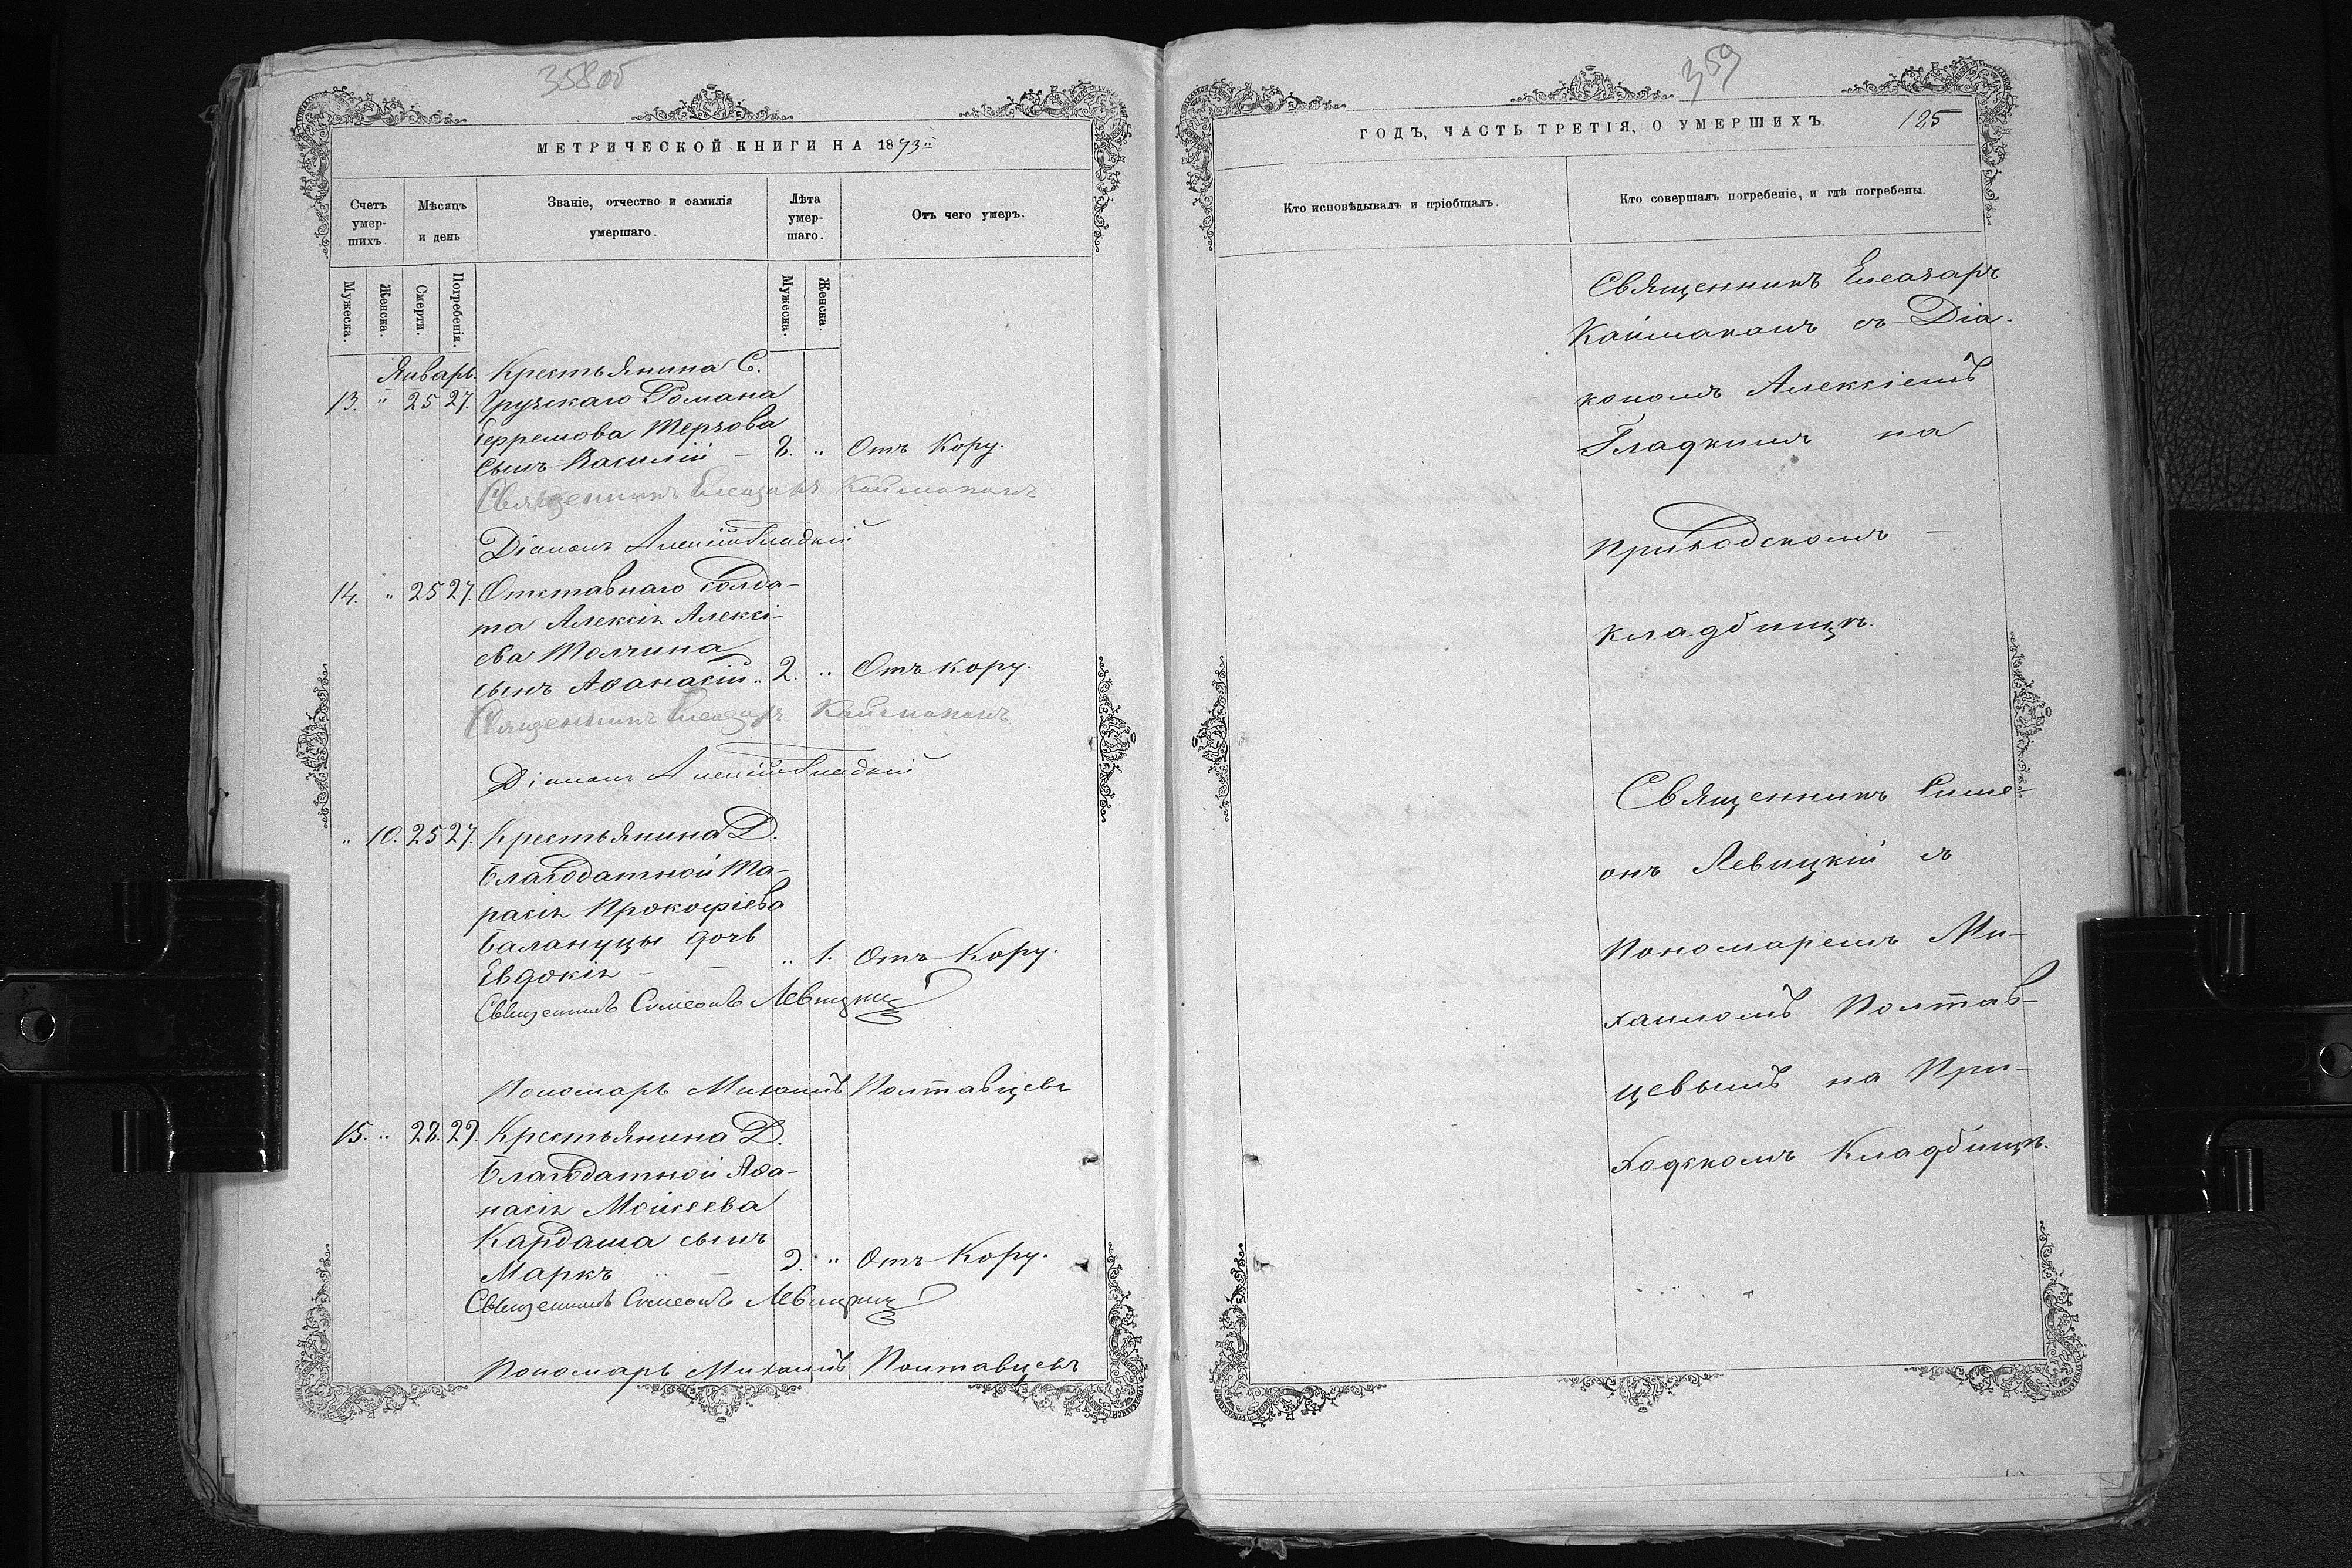 358об
МЕТРИЧЕСКОЙ КНИГИ НА 1873й
Счетъ умер-шихъ.
Мѣсяцъ и день
Званіе, отчество и фамилія умершаго.
Лѣта умер-шаго.
Отъ чего умеръ.
Мужеска.
Женска.
Смерти.
Погребенія.
Мужеска.
Женска.
Январь. Крестьянина С.
13. " 25 27. Грузскаго Романа
Ефремова
сынъ Василій - 8. " Отъ Кору.
Священникъ Елеазаръ Каймаканъ
Діаконъ Алексій Гладкій
14. " 25 27. Отставнаго солда-
та Алексѣя Алексі-
ева
сынъ Аѳанасій " 2. " Отъ кору.
Священникъ Елеазаръ Каймаканъ
Діаконъ Алексій Гладкій
" 10. 25 27. Крестьянина Д.
Благодатной Та-
расія Прокофіева
Балануцы дочь
Евдокія - - " 1. Отъ Кору.
Священникъ Симеонъ Левицкій
Пономарь Михаилъ Полтавцевъ
15. " 28. 29. Крестьянина Д.
Благодатной Аѳа-
насія Моисеева
Кардаша сынъ
Маркъ " - 2. " Отъ Кору.
Священникъ Симеонъ Левицкій
Пономарь Михаилъ Полтавцевъ
359
ГОДЪ, ЧАСТЬ ТРЕТІЯ, О УМЕРШИХЪ
125
Кто исповѣдывалъ и пріобщалъ.
Кто совершалъ погребеніе, и гдѣ погребены.
Священникъ Елеазаръ
Каймаканъ съ Діа-
кономъ Алексіемъ
Гладкимъ на
Приходскомъ -
кладбищѣ.
Священникъ Симе-
онъ Левицкій съ
Пономаремъ Ми-
хаиломъ Полтав-
цевымъ на При-
ходскомъ Кладбищѣ.